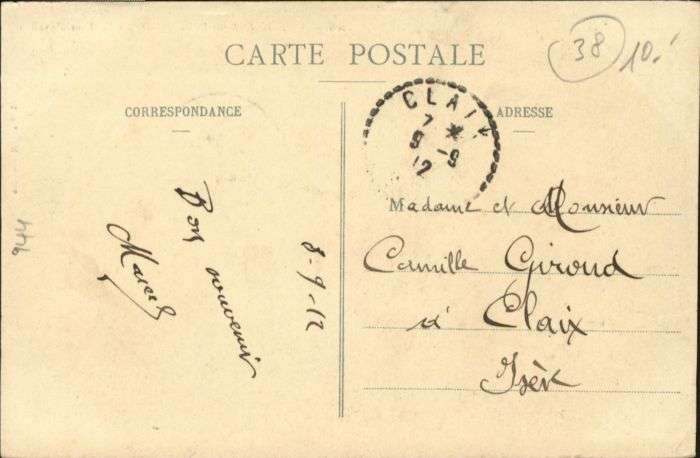 CARTE POSTALE
38
10.-
CORRESPONDANCE
ADRESSE
CLAIX
7 *
9 -9
12
Bon souvenir
Marcel
8-9-12
Madame et Monsieur
Camille Giroud
à Claix
Isère
446